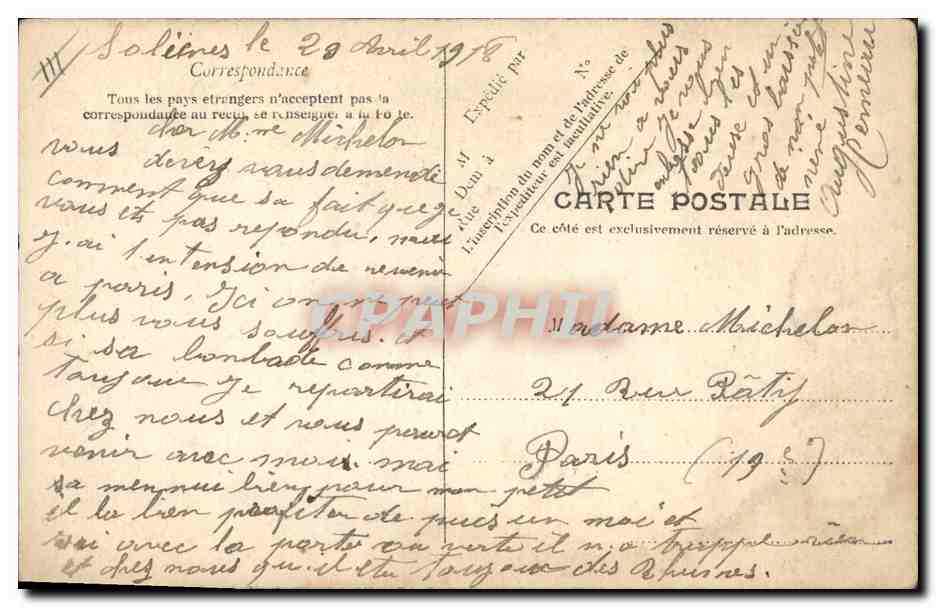 le 29 Avril 1918
Correspondance
Tous les pays étrangers n'acceptent pas la
correspondance au recto, se renseigner à la Poste.
Expédié par
M
Rue
Dem à
No
L'inscription du nom et de l'adresse de
l'expéditeur est facultative.
CARTE POSTALE
Ce côté est exclusivement réservé à l'adresse.
cher Mme Michelon
vous devez vous demende
comment que sa fait que je
vous et pas repondu, mais
j.ai l'intension de revenir
a paris, ici on ne peut
plus vous souffris. et
si sa bonbade comme
toujour je repartirai
chez nous et vous pouret
venir avec moi. mai
sa men nui bien pour mon petit
il la bien profiter de puis un moi et
avec la porte ou verte il n.a
et chez nous qu.il etu toujour des Rhumes.
je ne vois plus
rien a vous
dire je vous
embrasse bien
tous les
deuse et un
gros baiser
de mon petit
René
Augustine
Madame Michelon
21 Rue Pâtif
Paris (19 e)
CPAPHIL